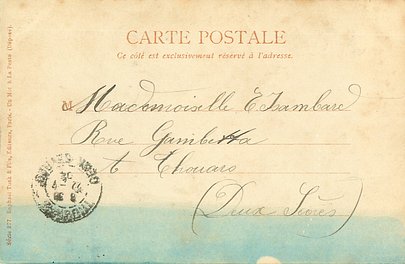 CARTE POSTALE
Ce côté est exclusivement réservé à l'adresse.
M
Mademoiselle E. Isambard
Rue Gambetta
à Thouars
(Deux Sèvres)
Série 977. Raphael Tuck & Fils, Éditeurs, Paris.